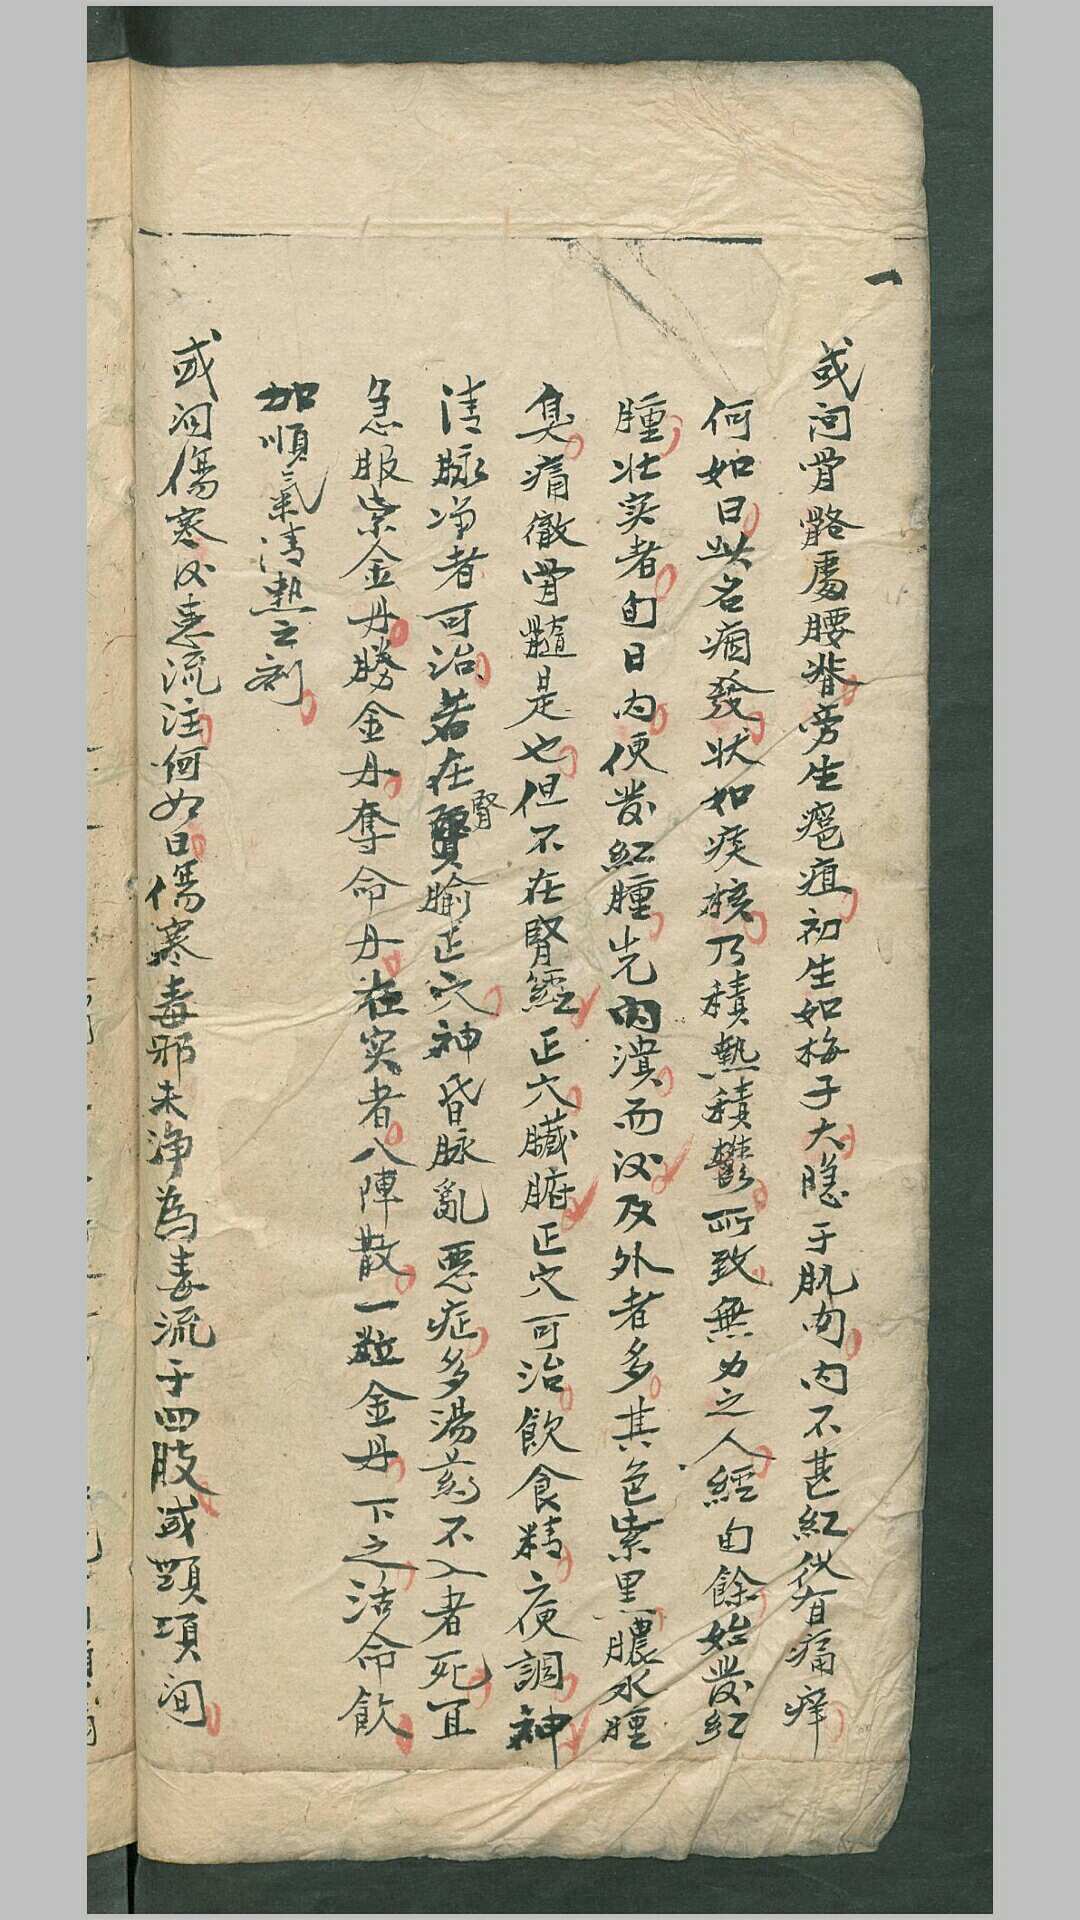 一
或问骨骼處腰脊旁生疮疽初生如梅子大隐于肌肉内不甚紅但有痛痒
何如曰此名痼發状如痰核乃積熱積鬱所致無力之人經旬餘始發紅
腫壮实者旬日内便發紅腫先内潰而后及外者多其色紫黑膿水腥
臭痛徹骨髓是也但不在腎經正穴臓腑正穴可治飲食精便調神
清脉净者可治若在腎腧正穴神昏脉亂惡症多湯葯不入者死宜
急服紫金丹勝金丹奪命丹在实者八陣散一粒金丹下之活命飲
加順氣清热之剂
或问傷寒后患流注何如曰傷寒毒邪未净為毒流于四肢或頭項间